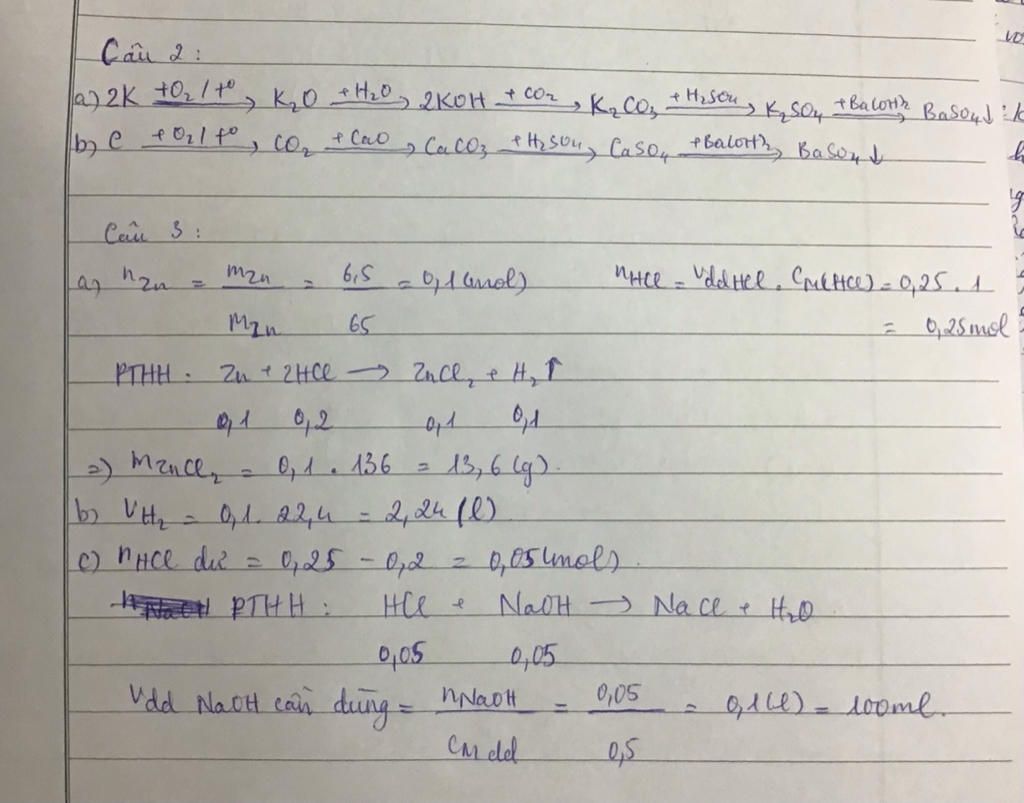 Câu 2 :
a) 2K +O₂/t° → K₂O +H₂O → 2KOH +CO₂ → K₂CO₃ +H₂SO₄ → K₂SO₄ +Ba(OH)₂ → BaSO₄↓
b) C +O₂/t° → CO₂ +CaO → CaCO₃ +H₂SO₄ → CaSO₄ +Ba(OH)₂ → BaSO₄↓
Câu 3 :
a) nZn = mZn / MZn = 6,5 / 65 = 0,1 (mol) nHCl = VddHCl . CM(HCl) = 0,25 . 1
= 0,25 mol
PTHH : Zn + 2HCl → ZnCl₂ + H₂↑
0,1 0,2 0,1 0,1
=) mZnCl₂ = 0,1 . 136 = 13,6 (g).
b) VH₂ = 0,1 . 22,4 = 2,24 (l)
c) nHCl dư = 0,25 - 0,2 = 0,05 (mol).
PTHH : HCl + NaOH → NaCl + H₂O
0,05 0,05
Vdd NaOH cần dùng = nNaOH / CM dd = 0,05 / 0,5 = 0,1 (l) = 100ml.